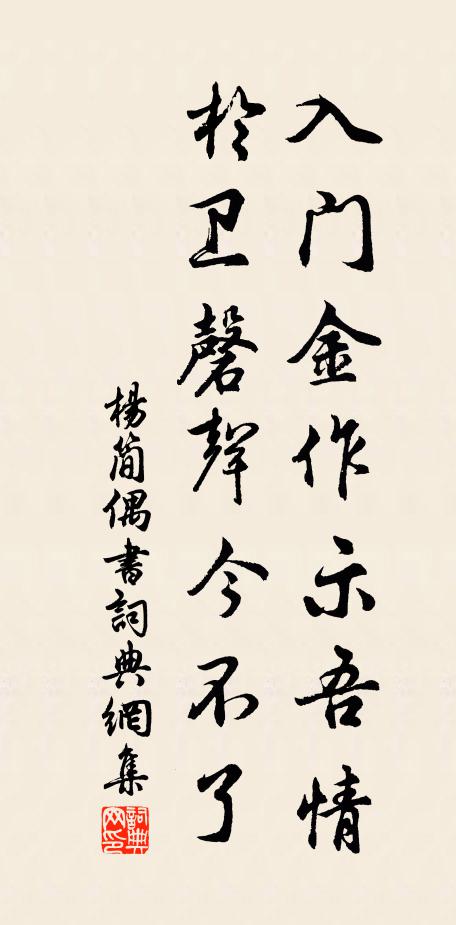 入门金作示吾情
於卫磬聲今不了
楊简偶書詞典網集
詞典
网印